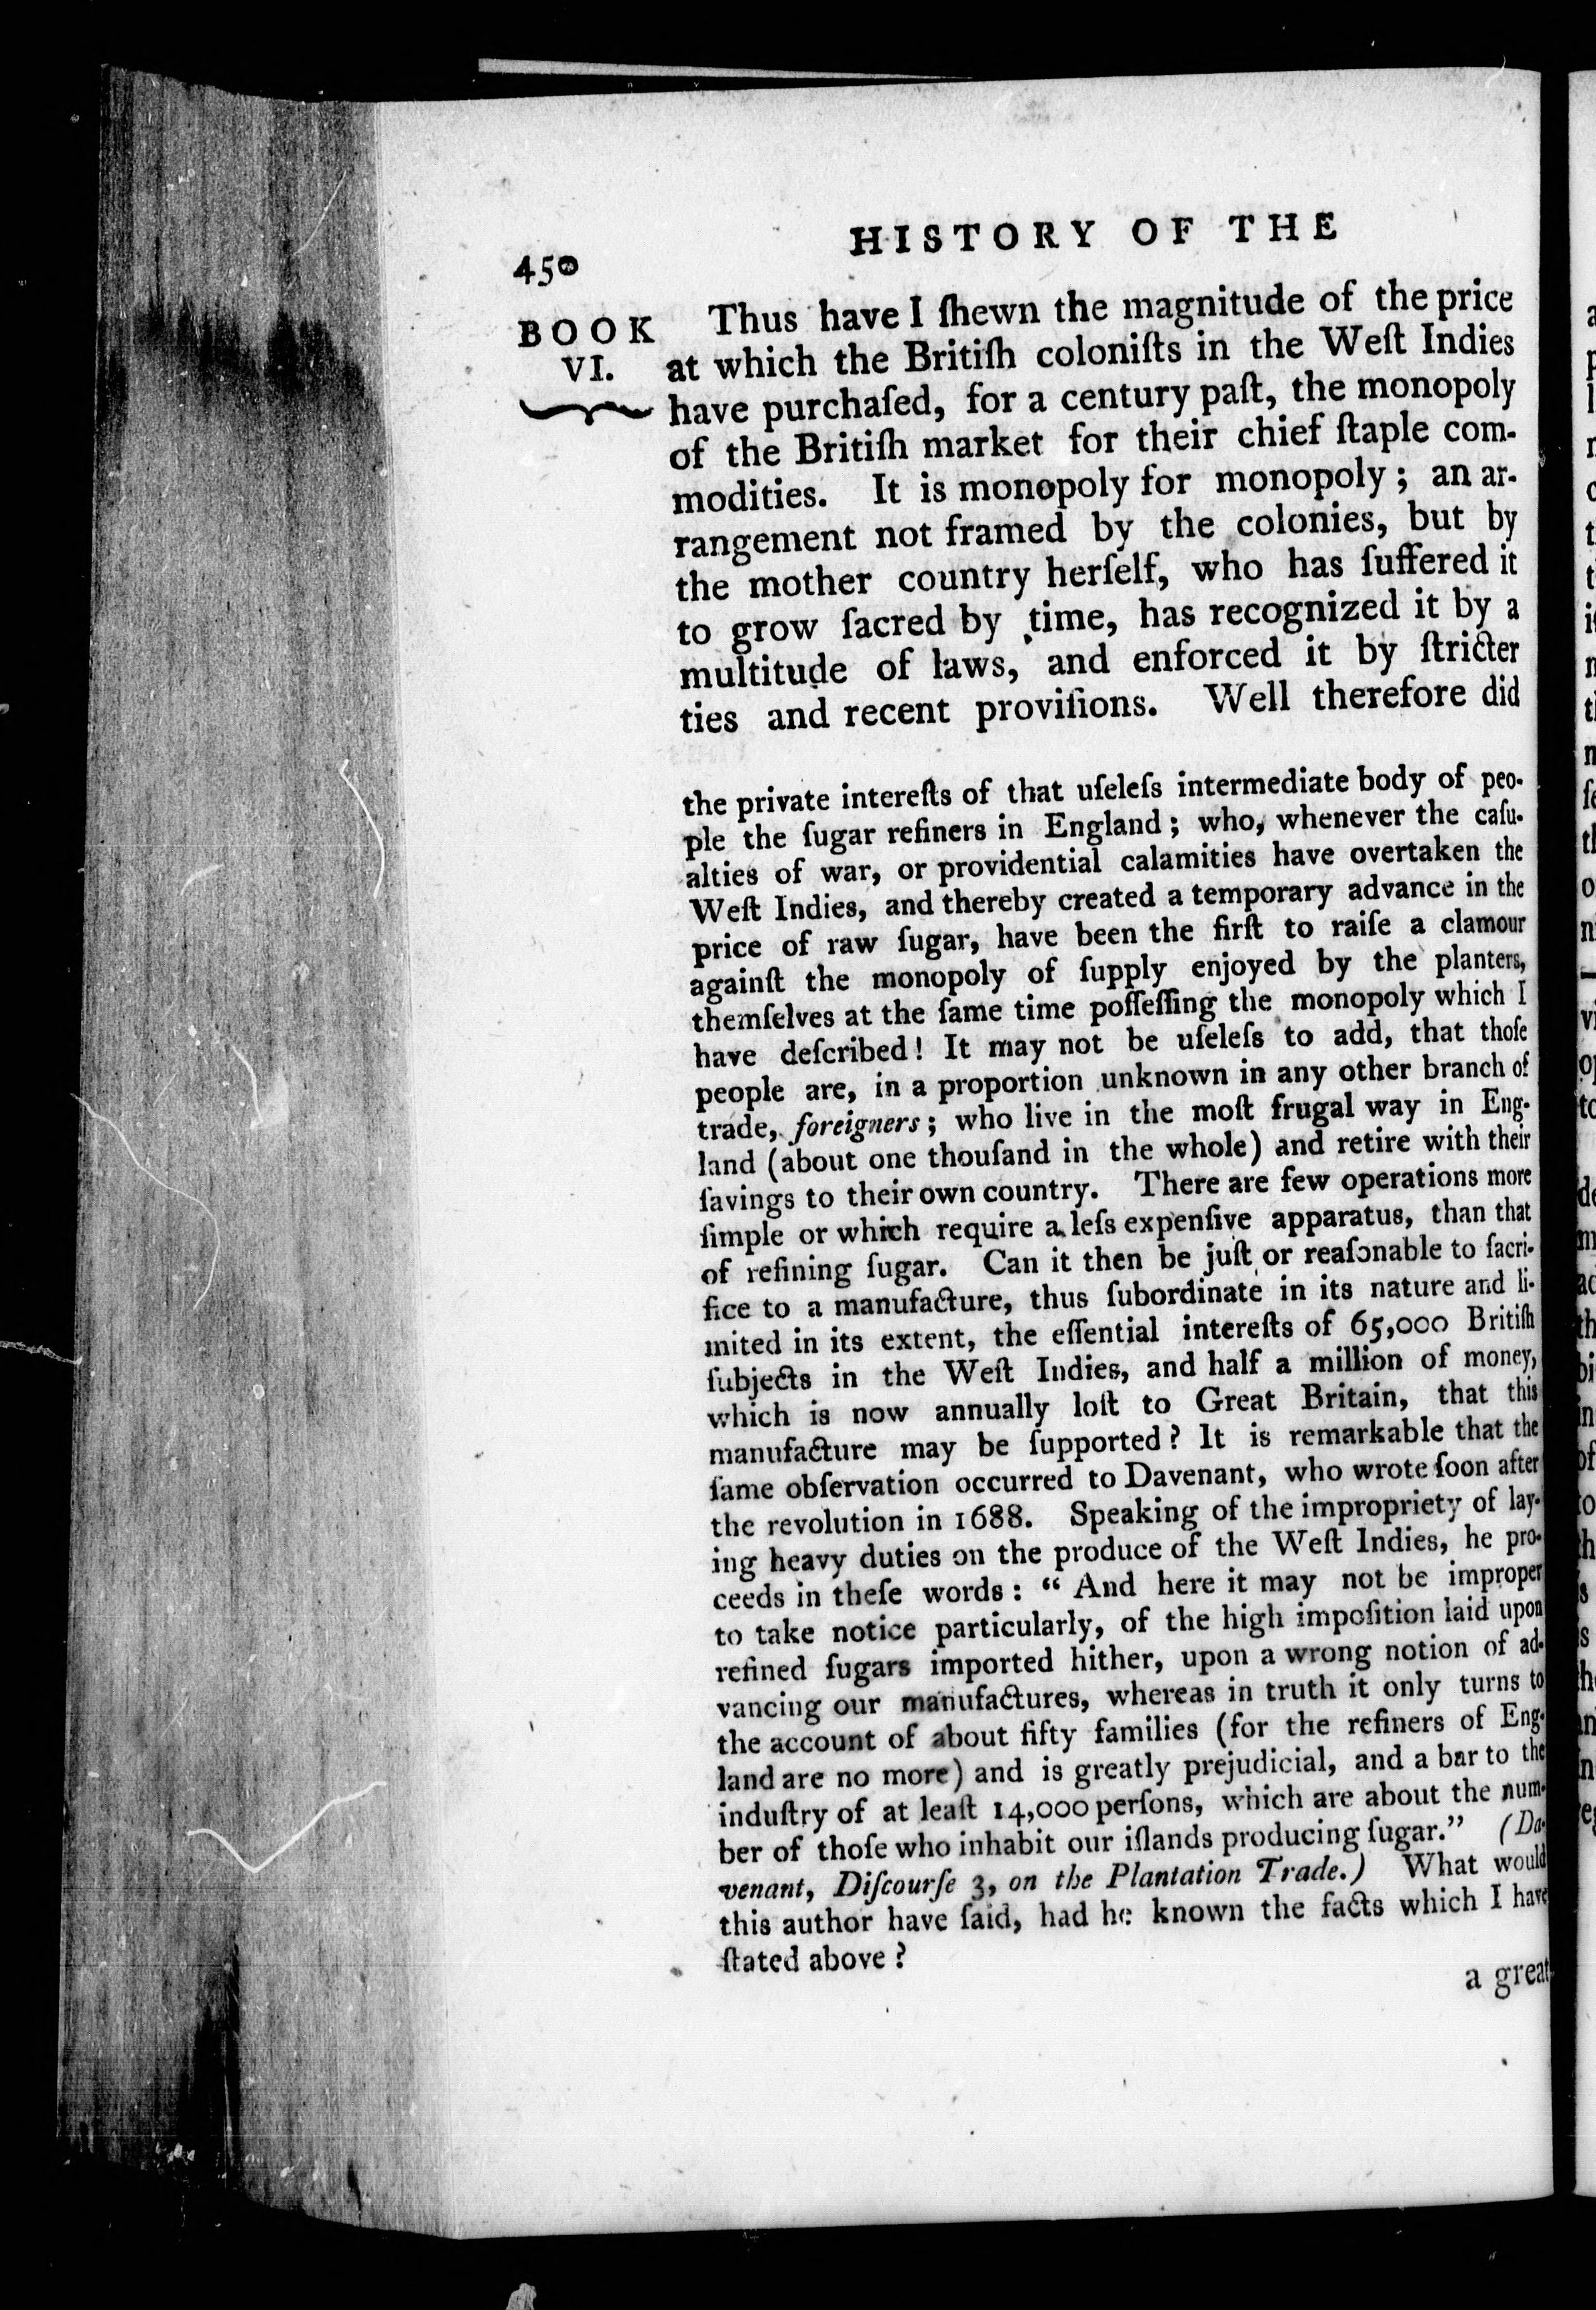 450
HISTORY OF THE
BOOK
VI.
Thus have I ſhewn the magnitude of the price
at which the Britiſh coloniſts in the Weſt Indies
have purchaſed, for a century paſt, the monopoly
of the Britiſh market for their chief ſtaple com-
modities. It is monopoly for monopoly; an ar-
rangement not framed by the colonies, but by
the mother country herſelf, who has ſuffered it
to grow ſacred by time, has recognized it by a
multitude of laws, and enforced it by ſtricter
ties and recent proviſions. Well therefore did
the private intereſts of that uſeleſs intermediate body of peo-
ple the ſugar refiners in England; who, whenever the caſu-
alties of war, or providential calamities have overtaken the
Weſt Indies, and thereby created a temporary advance in the
price of raw ſugar, have been the firſt to raiſe a clamour
againſt the monopoly of ſupply enjoyed by the planters,
themſelves at the ſame time poſſeſſing the monopoly which I
have deſcribed! It may not be uſeleſs to add, that thoſe
people are, in a proportion unknown in any other branch of
trade, foreigners; who live in the moſt frugal way in Eng-
land (about one thouſand in the whole) and retire with their
ſavings to their own country. There are few operations more
ſimple or which require a leſs expenſive apparatus, than that
of refining ſugar. Can it then be juſt or reaſonable to ſacri-
fice to a manufacture, thus ſubordinate in its nature and li-
mited in its extent, the eſſential intereſts of 65,000 Britiſh
ſubjects in the Weſt Indies, and half a million of money,
which is now annually loſt to Great Britain, that this
manufacture may be ſupported? It is remarkable that the
ſame obſervation occurred to Davenant, who wrote ſoon after
the revolution in 1688. Speaking of the impropriety of lay-
ing heavy duties on the produce of the Weſt Indies, he pro-
ceeds in theſe words: “ And here it may not be improper
to take notice particularly, of the high impoſition laid upon
refined ſugars imported hither, upon a wrong notion of ad-
vancing our manufactures, whereas in truth it only turns to
the account of about fifty families (for the refiners of Eng-
land are no more) and is greatly prejudicial, and a bar to the
induſtry of at leaſt 14,000 perſons, which are about the num-
ber of thoſe who inhabit our iſlands producing ſugar.” (Da-
venant, Diſcourſe 3, on the Plantation Trade.) What would
this author have ſaid, had he known the facts which I have
ſtated above?
a great